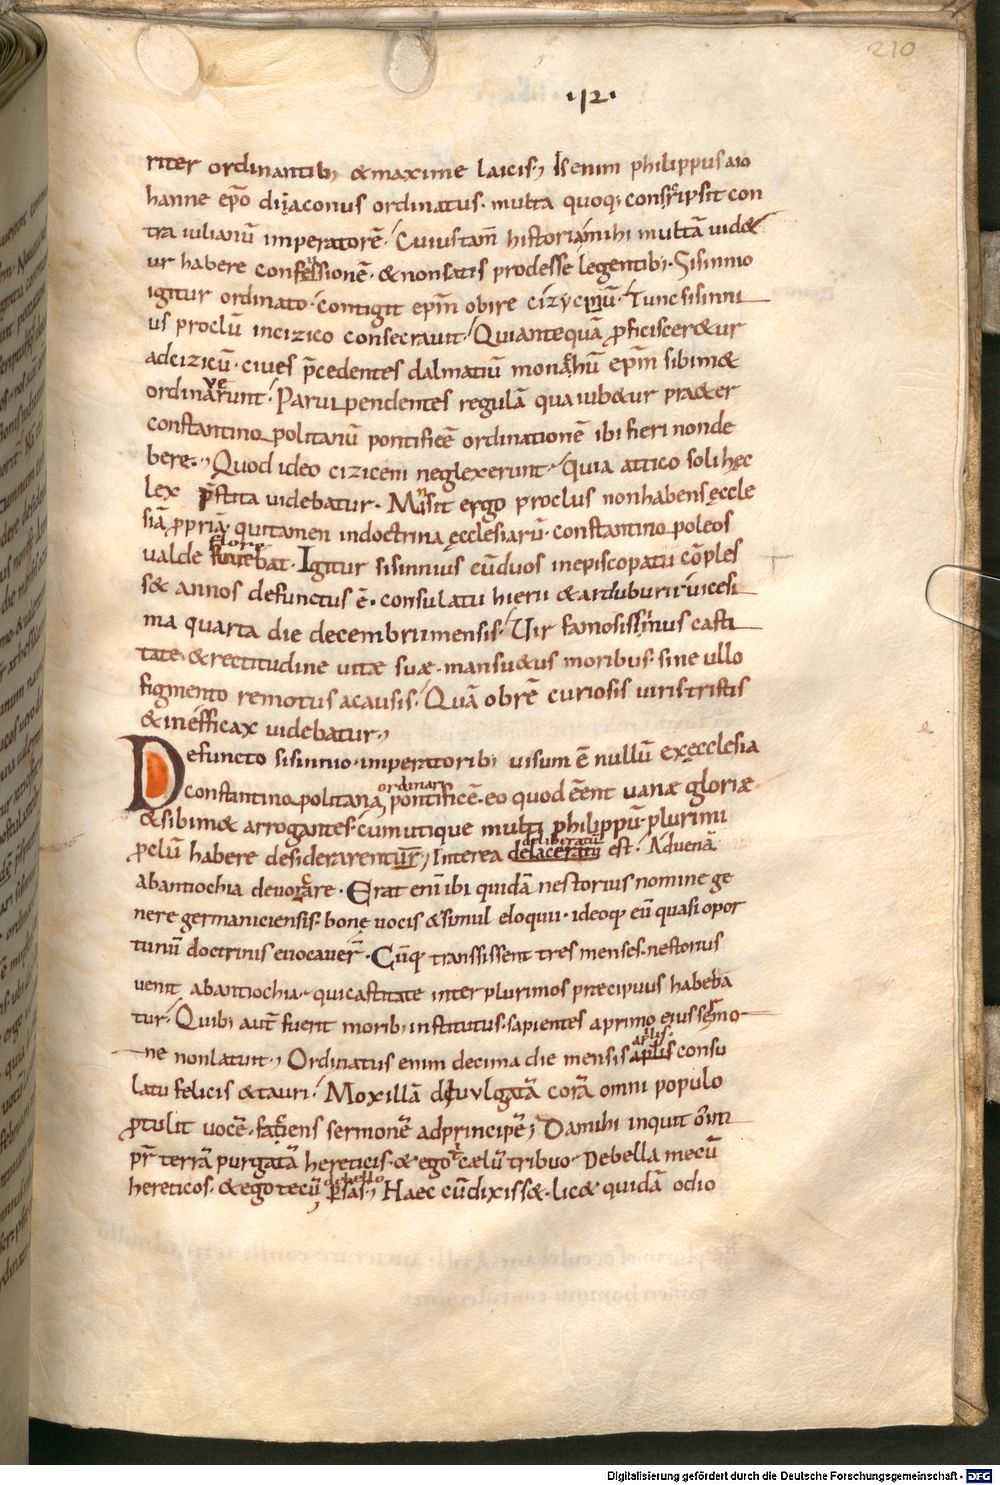 210
·12·
riter ordinantib; & maxime laicis; Is enim philippus aio
hanne ep̄o diaconus ordinatus· multa quoq; conscripsit con
tra iulianū imperatorē· Cuius tam̄ historiā mihi multā uid&
ur habere confessionē· & non satis prodesse legentib;· Sisinnio
igitur ordinato· contigit ep̄m obire cizycenū· Tunc sisinni
us proclū incizico consecrauit· Qui antequā p̱ficiscer&ur
adcizicū· ciues p̄cedentes dalmatiū monachū ep̄m sibim&
ordinaverunt· Parui pendentes regulā qua iub&ur pra&er
constantinopolitanū pontificē ordinationē ibi fieri non de
bere·; Quod ideo ciziceni neglexerunt· quia attico soli hęc
lex p̄stita uidebatur· Mansit ergo proclus non habens ęccle
siā p̱priā· qui tamen in doctrina ęcclesiarū· constantinopoleos
ualde florebat· Igitur sisinnius cū duos in episcopatu cōples
s& annos defunctus ē· consulatu hierii & arduburii· uicesi
ma quarta die decembrii mensis· Uir famosissimus casti
tate· & rectitudine uitæ suæ· mansu&us moribus· sine ullo
figmento remotus a causis· Quā obrē curiosis uiris tristis
& inefficax uidebatur;
Defuncto sisinnio· imperatorib; uisum ē nullū ex ęcclesia
constantinopolitana ordinari pontificē· eo quod eēnt uanæ gloriæ·
& sibim& arrogantes· cum utique multi philippū· plurimi
p̱clū habere desiderarentur; Interea deliberatū est· Aduenā
ab antiochia deuocare· Erat enī ibi quidā nestorius nomine ge
nere germaniciensis· bonę uocis & simul eloquii· ideoq; eū quasi opor
tunū doctrinis euocauer̄· Cūq; transissent tres menses· nestorius
uenit ab antiochia· qui castitate inter plurimos præcipuus habeba
tur· Quib; aut̄ fuerit morib; institutus· sapientes a primo eius sermo
ne non latuit; Ordinatus enim decima die mensis aplis consu
latu felicis & tauri· Mox illā diuulgatā corā omni populo
p̱tulit uocē· faciens sermonē ad principē; Da mihi inquit ō im
pr̄ terrā purgatā hereticis· & ego t̄ cælū tribuo· Debella mecū
hereticos· & ego tecū debello p̱sas; Haec cū dixiss&· lic& quidā odio
Digitalisierung gefördert durch die Deutsche Forschungsgemeinschaft - DFG